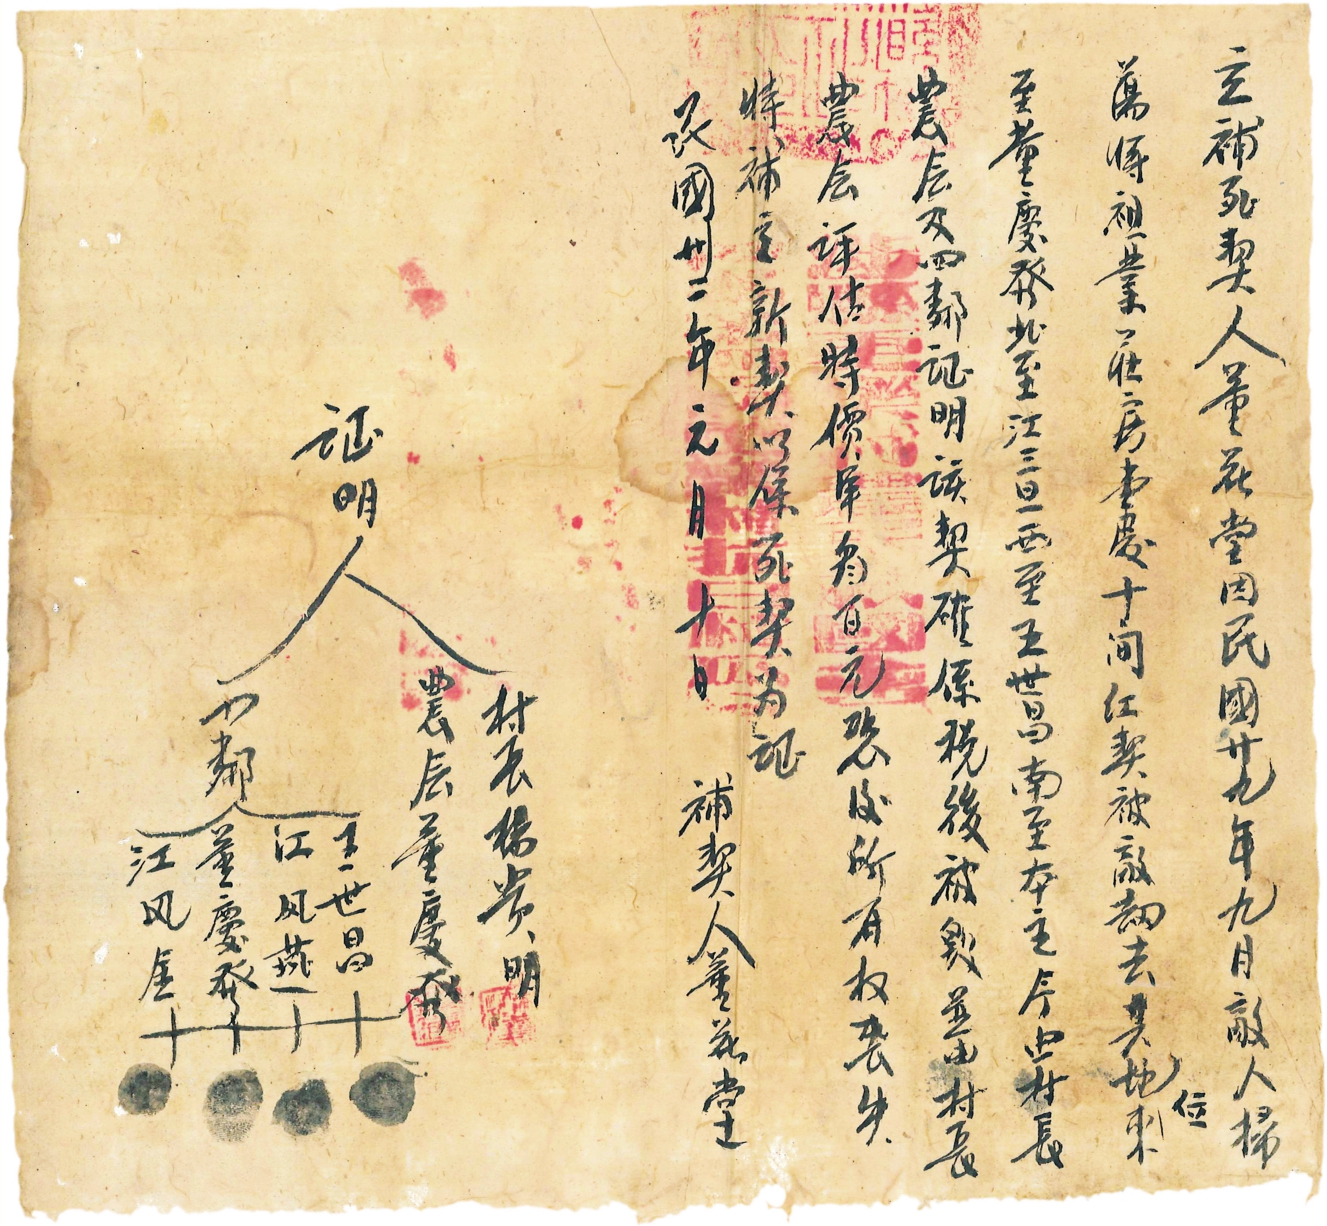 立補死契人董花堂因民國廿九年九月敵人掃
蕩將祖業一莊房壹處十間红契被敵刼去其地位東
至董慶發北至江三旦西至王世昌南至本主今由村長
農会及四鄰証明該契確係税後被毀並由村長
農会评估時價单為百元恐後所有权丧失
特補立新契以保死契为证
民國卅二年元月十日
補契人董花堂
证明人
村长楊贵明
農会董慶發
四鄰
王世昌
江风燕
董慶發
江风金